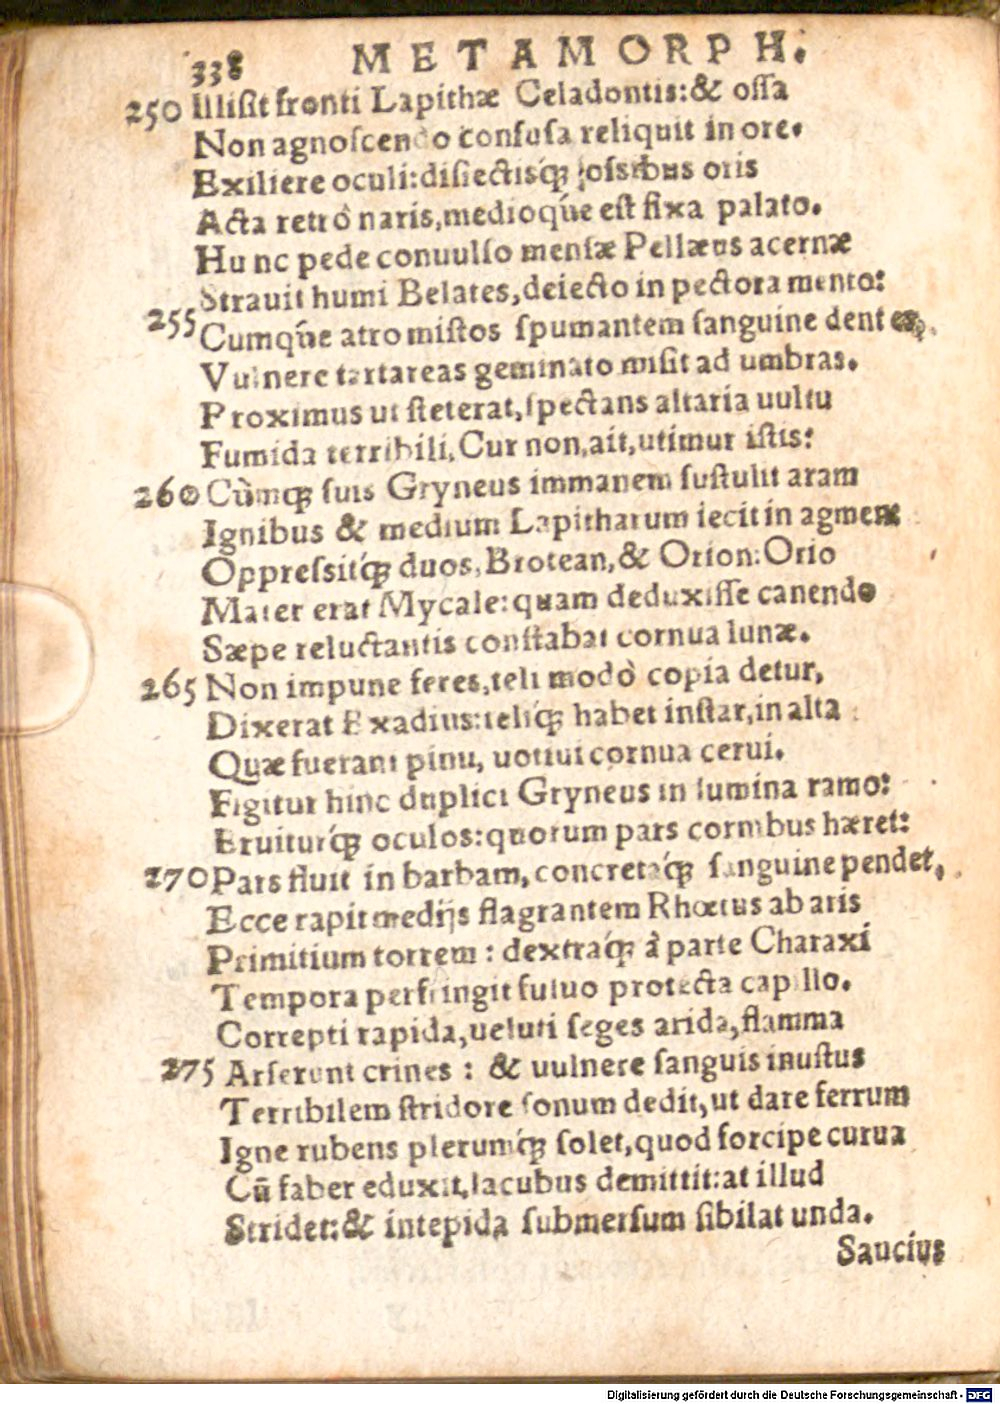 338 METAMORPH.
250 Illisit fronti Lapithæ Celadontis:& oſſa
Non agnoſcendo confuſa reliquit in ore.
Exiliere oculi:diſiectisq́; oſsibus oris
Acta retrò naris,medioq́ue eſt fixa palato.
Hunc pede conuulſo menſæ Pellæus acernæ
Strauit humi Belates,deiecto in pectora mento:
255 Cumq́ue atro miſtos ſpumantem ſanguine dentes,
Vulnere tartareas geminato miſit ad umbras.
Proximus ut ſteterat,ſpectans altaria uultu
Fumida terribili,Cur non,ait,utimur iſtis?
260 Cùmq; ſuis Gryneus immanem ſuſtulit aram
Ignibus & medium Lapitharum iecit in agmen
Oppreſsitq́; duos,Brotean,& Orion:Orio
Mater erat Mycale:quam deduxiſſe canendo
Sæpe reluctantis conſtabat cornua lunæ.
265 Non impune feres,teli modò copia detur,
Dixerat Exadius:teliq́; habet inſtar,in alta
Quæ fuerant pinu, uotiui cornua cerui.
Figitur hinc duplici Gryneus in lumina ramo:
Eruiturq́; oculos:quorum pars cornibus hæret:
270 Pars fluit in barbam,concretaq́; ſanguine pendet,
Ecce rapit medijs flagrantem Rhœtus ab aris
Primitium torrem : dextraq́; à parte Charaxi
Tempora perfringit fuluo protecta capillo.
Correpti rapida,ueluti ſeges arida,flamma
275 Arſerunt crines : & uulnere ſanguis inuſtus
Terribilem ſtridore ſonum dedit,ut dare ferrum
Igne rubens plerumq́; ſolet,quod forcipe curua
Cū faber eduxit,lacubus demittit:at illud
Stridet:& intepida ſubmerſum ſibilat unda.
Saucius
Digitalisierung gefördert durch die Deutsche Forschungsgemeinschaft - DFG